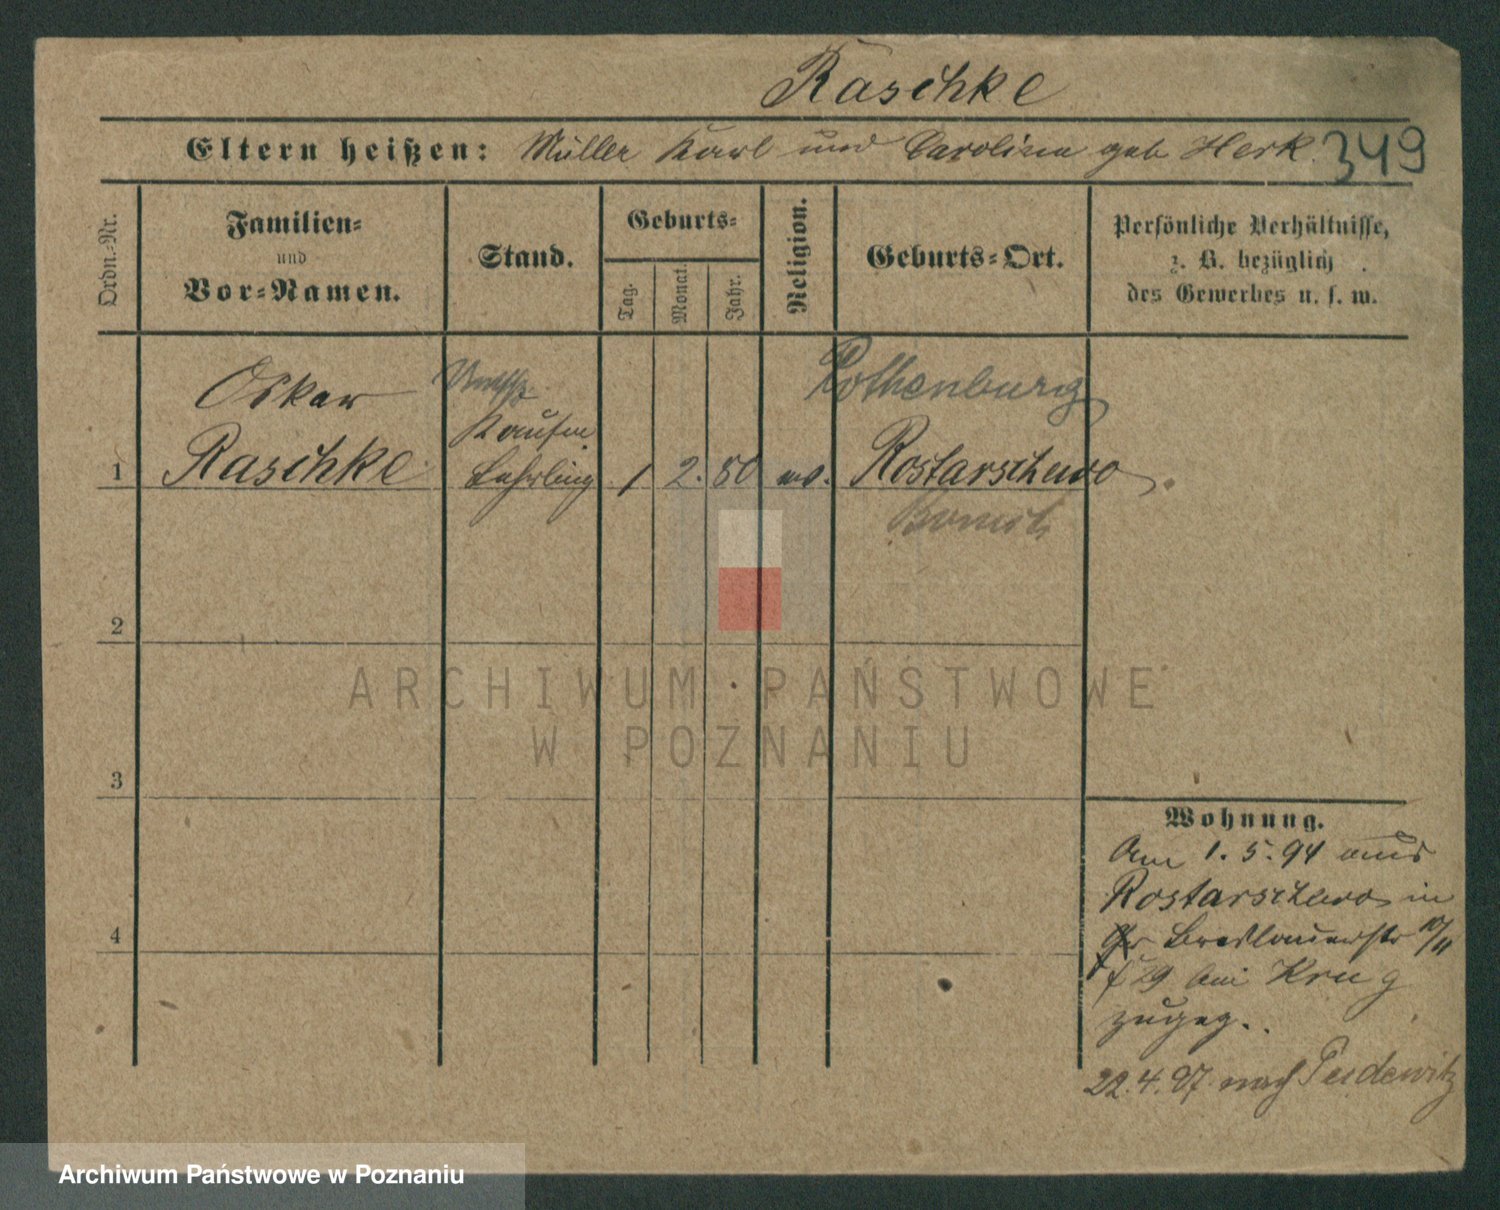 Raschke
Eltern heißen: Müller Karl und Carolina geb Herk.
349
Ordn.-Nr.
Familien-
und
Vor-Namen.
Stand.
Geburts-
Tag.
Monat.
Jahr.
Religion.
Geburts-Ort.
Persönliche Verhältnisse,
z. B. bezüglich
des Gewerbes u. s. w.
Oskar
Kaufm.
Rothenburg
1 Raschke Lehrling 1 2. 80 ev. Rostarschewo
Bomst
2
3
4
Wohnung.
Am 1. 5. 94 aus
Rostarschewo in
Breslauerstr 10/11
bei Krug
zugez.
22. 4. 97 nach Pudewitz
ARCHIWUM PAŃSTWOWE
W POZNANIU
Archiwum Państwowe w Poznaniu